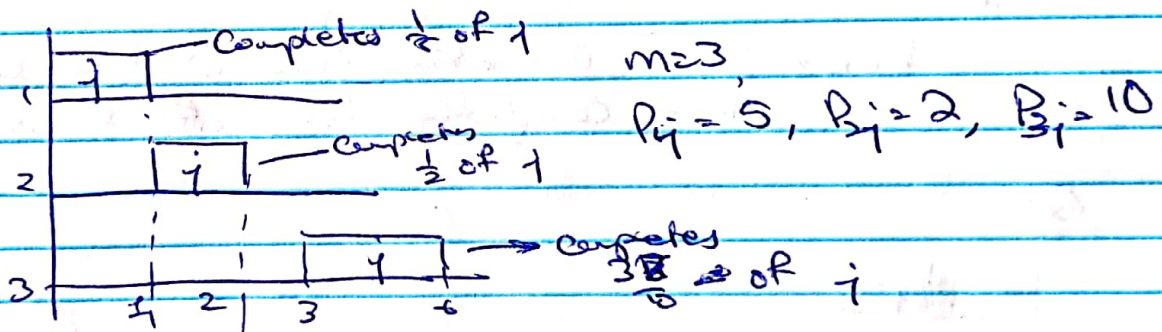 Completes 1/5 of j
m=3,
1 j
P1j = 5, P2j = 2, P3j = 10
completes
1/2 of j
2 j
completes
3 j 3/10 of j
1 2 3 6